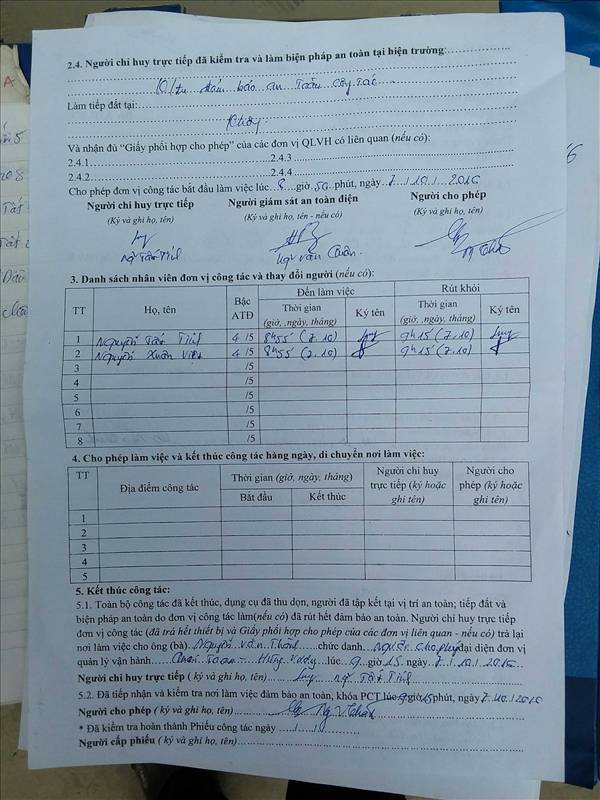 2.4. Người chỉ huy trực tiếp đã kiểm tra và làm biện pháp an toàn tại hiện trường:
đảm bảo an toàn công tác
Làm tiếp đất tại:
Không
Và nhận đủ “Giấy phối hợp cho phép” của các đơn vị QLVH có liên quan (nếu có):
2.4.1 2.4.3
2.4.2 2.4.4
Cho phép đơn vị công tác bắt đầu làm việc lúc 8 giờ 50 phút, ngày 7/10/2016
Người chỉ huy trực tiếp Người giám sát an toàn điện Người cho phép
(Ký và ghi họ, tên) (Ký và ghi họ, tên - nếu có) (Ký và ghi họ, tên)
Ng Tấn Tính Ng Văn
3. Danh sách nhân viên đơn vị công tác và thay đổi người (nếu có):
TT Họ, tên Bậc ATĐ Đến làm việc Rút khỏi
Thời gian (giờ, ,ngày, tháng) Ký tên Thời gian (giờ, ngày, tháng) Ký tên
1 Nguyễn Tấn Tính 4 /5 8h55 (7.10) 9h15 (7.10)
2 Nguyễn Xuân 4 /5 8h55 (7.10) 9h15 (7.10)
3 /5
4 /5
5 /5
6 /5
7 /5
8 /5
4. Cho phép làm việc và kết thúc công tác hàng ngày, di chuyển nơi làm việc:
TT Địa điểm công tác Thời gian (giờ, ngày, tháng) Người chỉ huy trực tiếp (ký hoặc ghi tên) Người cho phép (ký hoặc ghi tên)
Bắt đầu Kết thúc
1
2
3
4
5
5. Kết thúc công tác:
5.1. Toàn bộ công tác đã kết thúc, dụng cụ đã thu dọn, người đã tập kết tại vị trí an toàn; tiếp đất và
biện pháp an toàn do đơn vị công tác làm(nếu có) đã rút hết đảm bảo an toàn. Người chỉ huy trực tiếp
đơn vị công tác (đã trả hết thiết bị và Giấy phối hợp cho phép của các đơn vị liên quan - nếu có) trả lại
nơi làm việc cho ông (bà) Nguyễn Văn chức danh người cho phép đại diện đơn vị
quản lý vận hành lúc 9 giờ 15. ngày 7/10/2016
Người chỉ huy trực tiếp ( ký và ghi họ, tên) Ng Tấn Tính
5.2. Đã tiếp nhận và kiểm tra nơi làm việc đảm bảo an toàn, khóa PCT lúc 9 giờ 15 phút, ngày 7/10/2016
Người cho phép ( ký và ghi họ, tên) Ng V
* Đã kiểm tra hoàn thành Phiếu công tác ngày / /
Người cấp phiếu ( ký và ghi họ, tên)